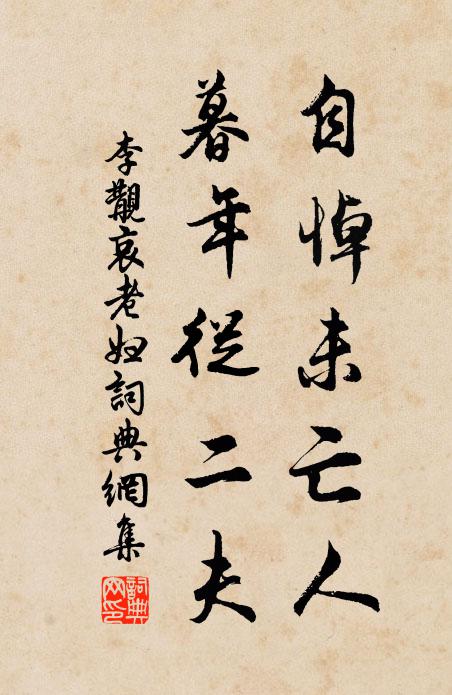 自悼未亡人
暮年從二夫
李覯哀老婦詞典網集
詞典網印